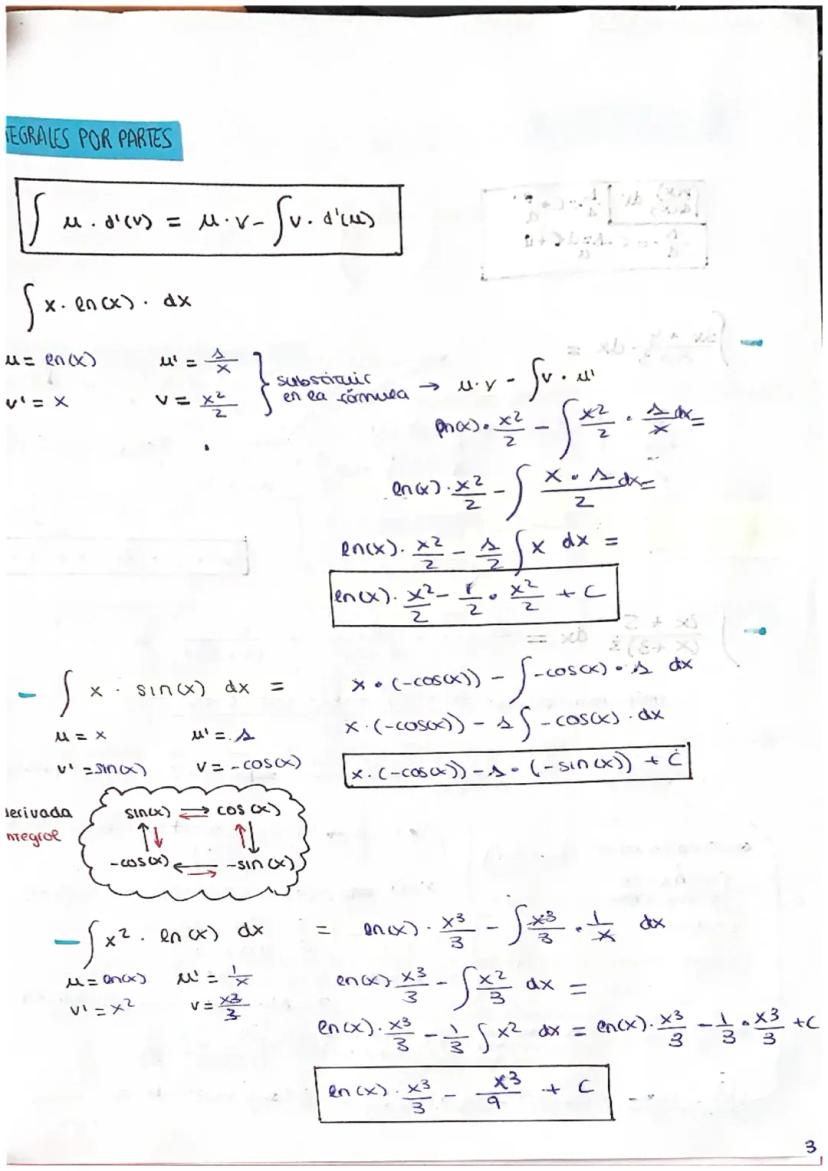 TEGRALES POR PARTES
∫ u · d'(v) = u·v - ∫ v · d'(u)
∫ x · ln(x) · dx
u = ln(x) u' = 1/x
v' = x v = x²/2
substituir en la fórmula → u·v - ∫ v · u'
ln(x) · x²/2 - ∫ x²/2 · 1/x dx =
ln(x) · x²/2 - ∫ x · 1/2 dx =
ln(x) · x²/2 - 1/2 ∫ x dx =
ln(x) · x²/2 - 1/2 · x²/2 + C
- ∫ x · sin(x) dx = x · (-cos(x)) - ∫ -cos(x) · 1 dx
u = x u' = 1 x · (-cos(x)) - 1 ∫ -cos(x) · dx
v' = sin(x) v = -cos(x) x · (-cos(x)) - 1 · (-sin(x)) + C
derivada sin(x) → cos(x)
ntegral
-cos(x) ← -sin(x)
- ∫ x² · ln(x) dx = ln(x) · x³/3 - ∫ x³/3 · 1/x dx
u = ln(x) u' = 1/x ln(x) · x³/3 - ∫ x²/3 dx =
v' = x² v = x³/3
ln(x) · x³/3 - 1/3 ∫ x² dx = ln(x) · x³/3 - 1/3 · x³/3 + C
ln(x) · x³/3 - x³/9 + C
3